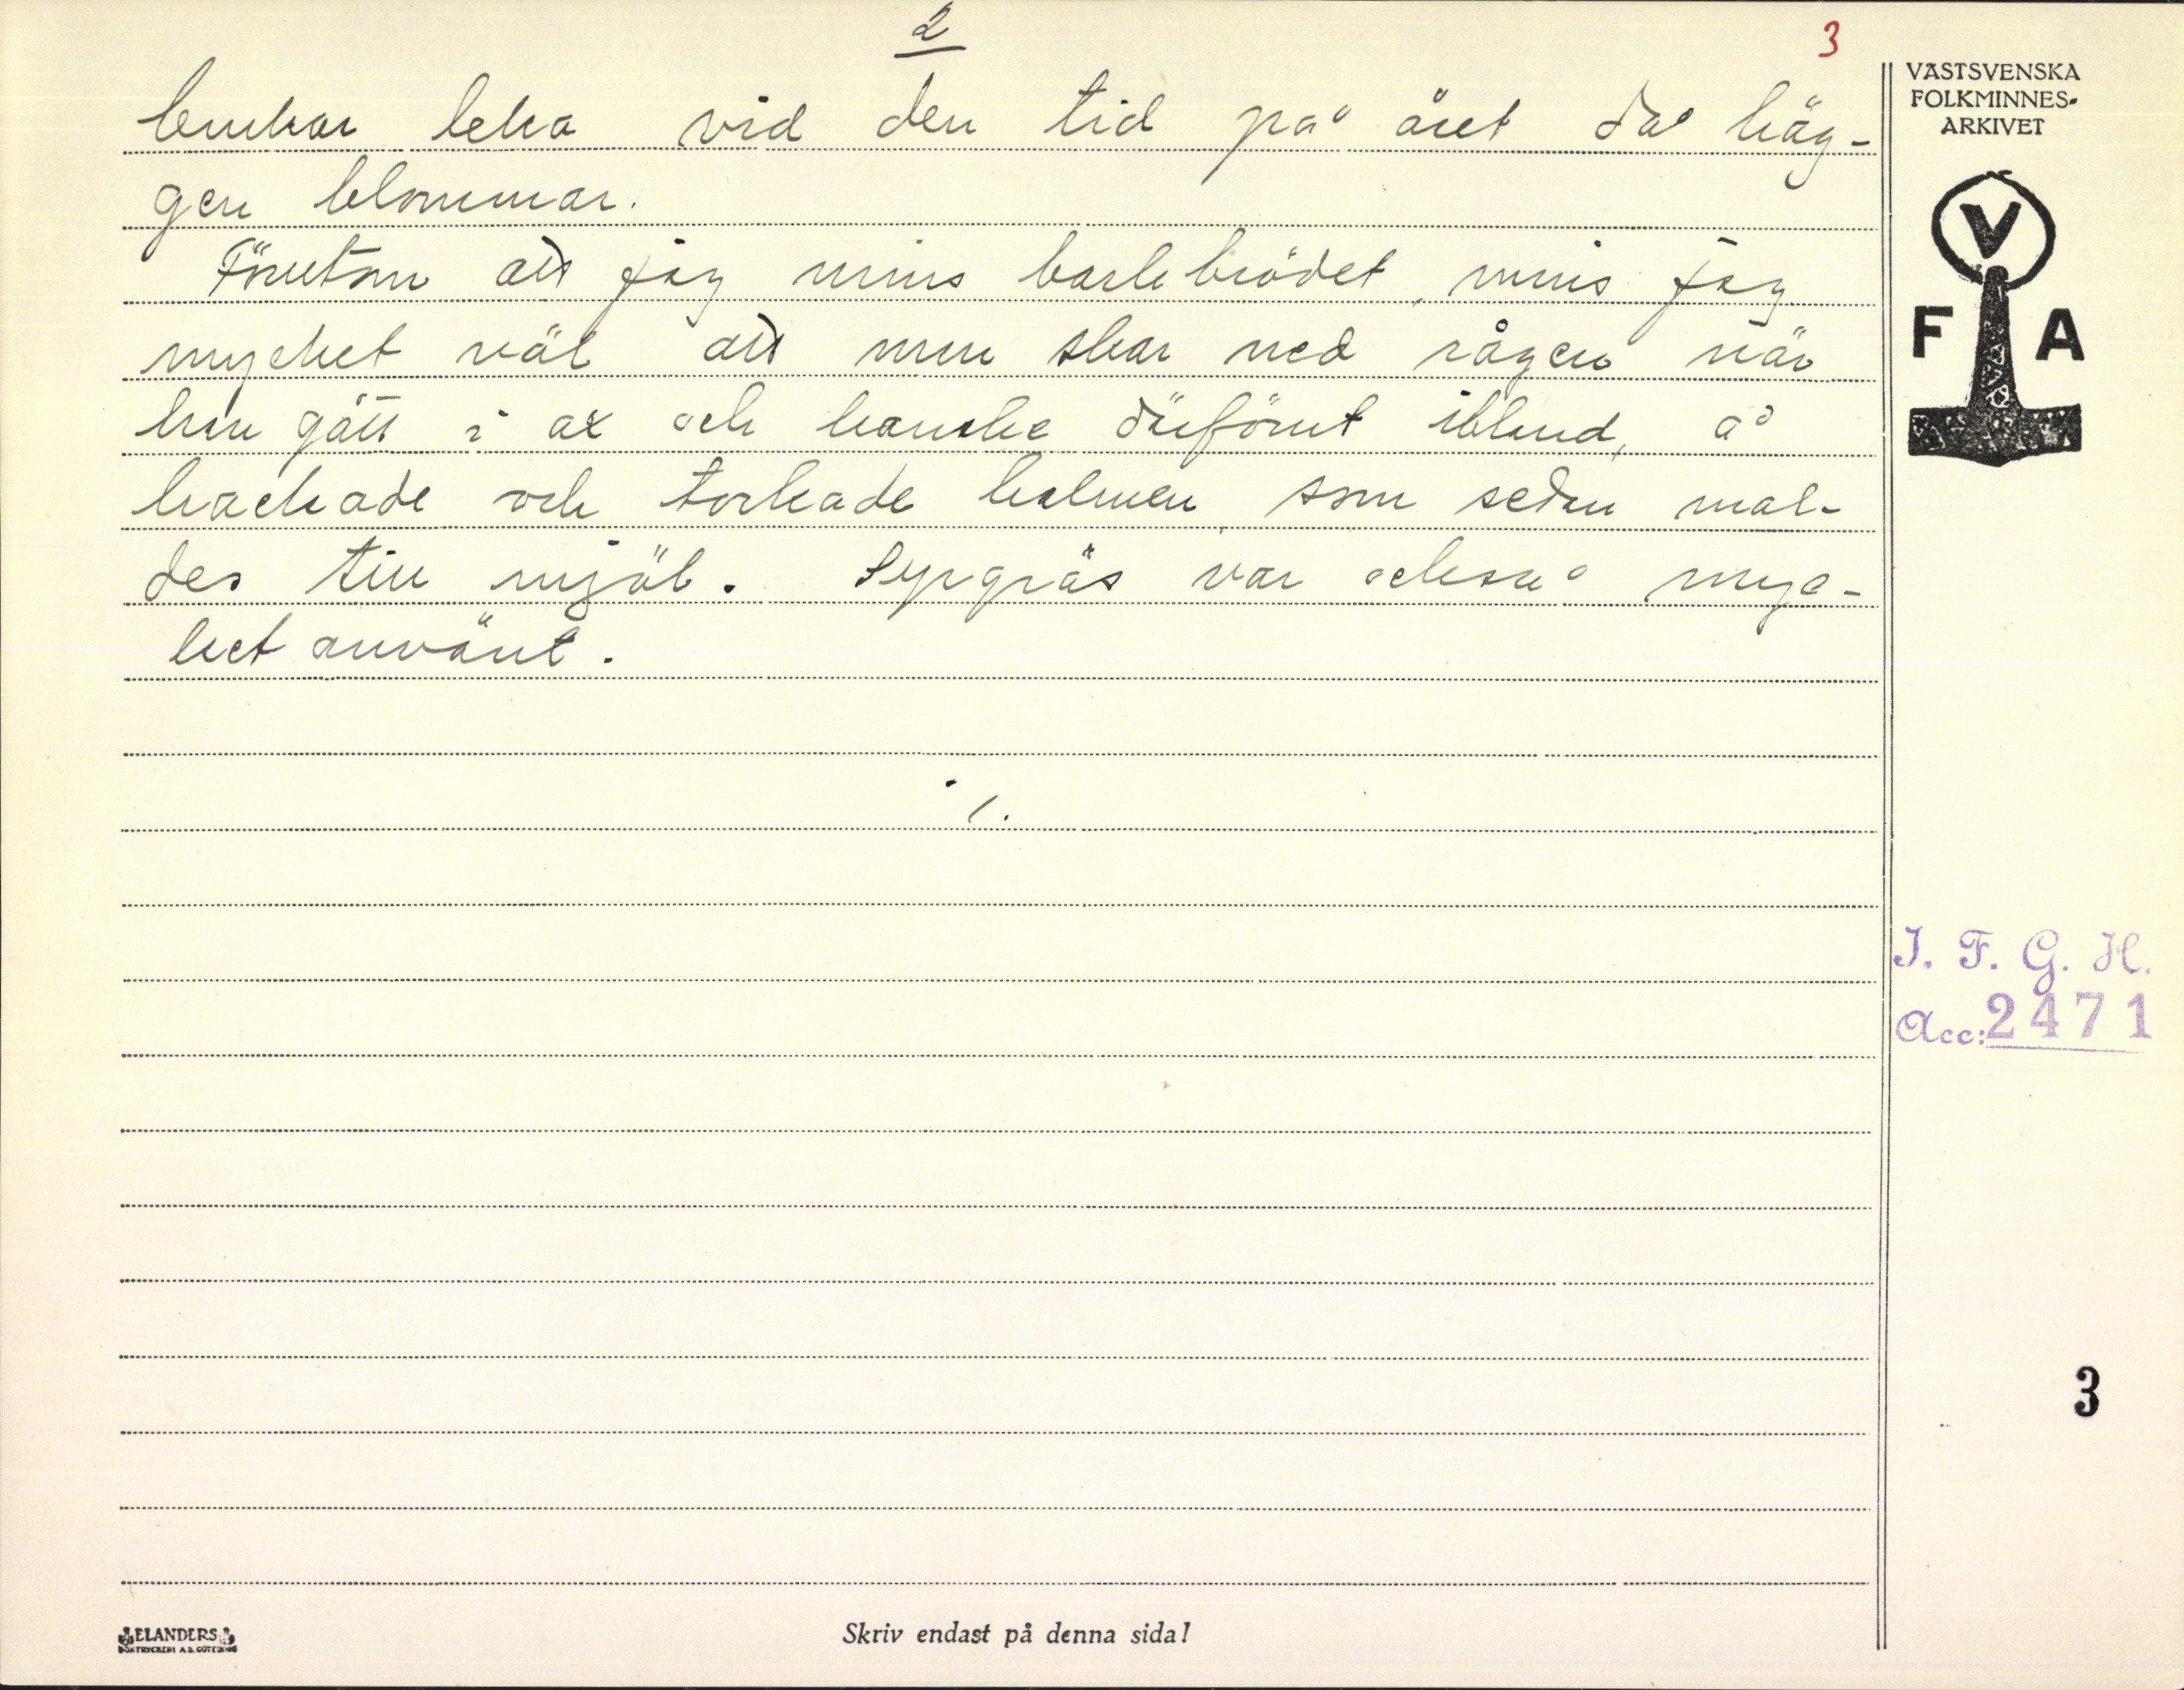 2
3
brukar leka vid den tid på året då häg-
gen blommar.
Förutom att jag minns barkbrödet, minns jag
mycket väl att man skar ned rågen när
han gått i ax och kanske därförut ibland, å
hackade och torkade halmen, som sedan mal-
des till mjöl. Syrgräs var också myc-
ket använt.
VÄSTSVENSKA
FOLKMINNES-
ARKIVET
V
F A
I. F. G. H.
Acc: 2471
3
ELANDERS
BOKTRYCKERI A.B. GÖTEBORG
Skriv endast på denna sida!